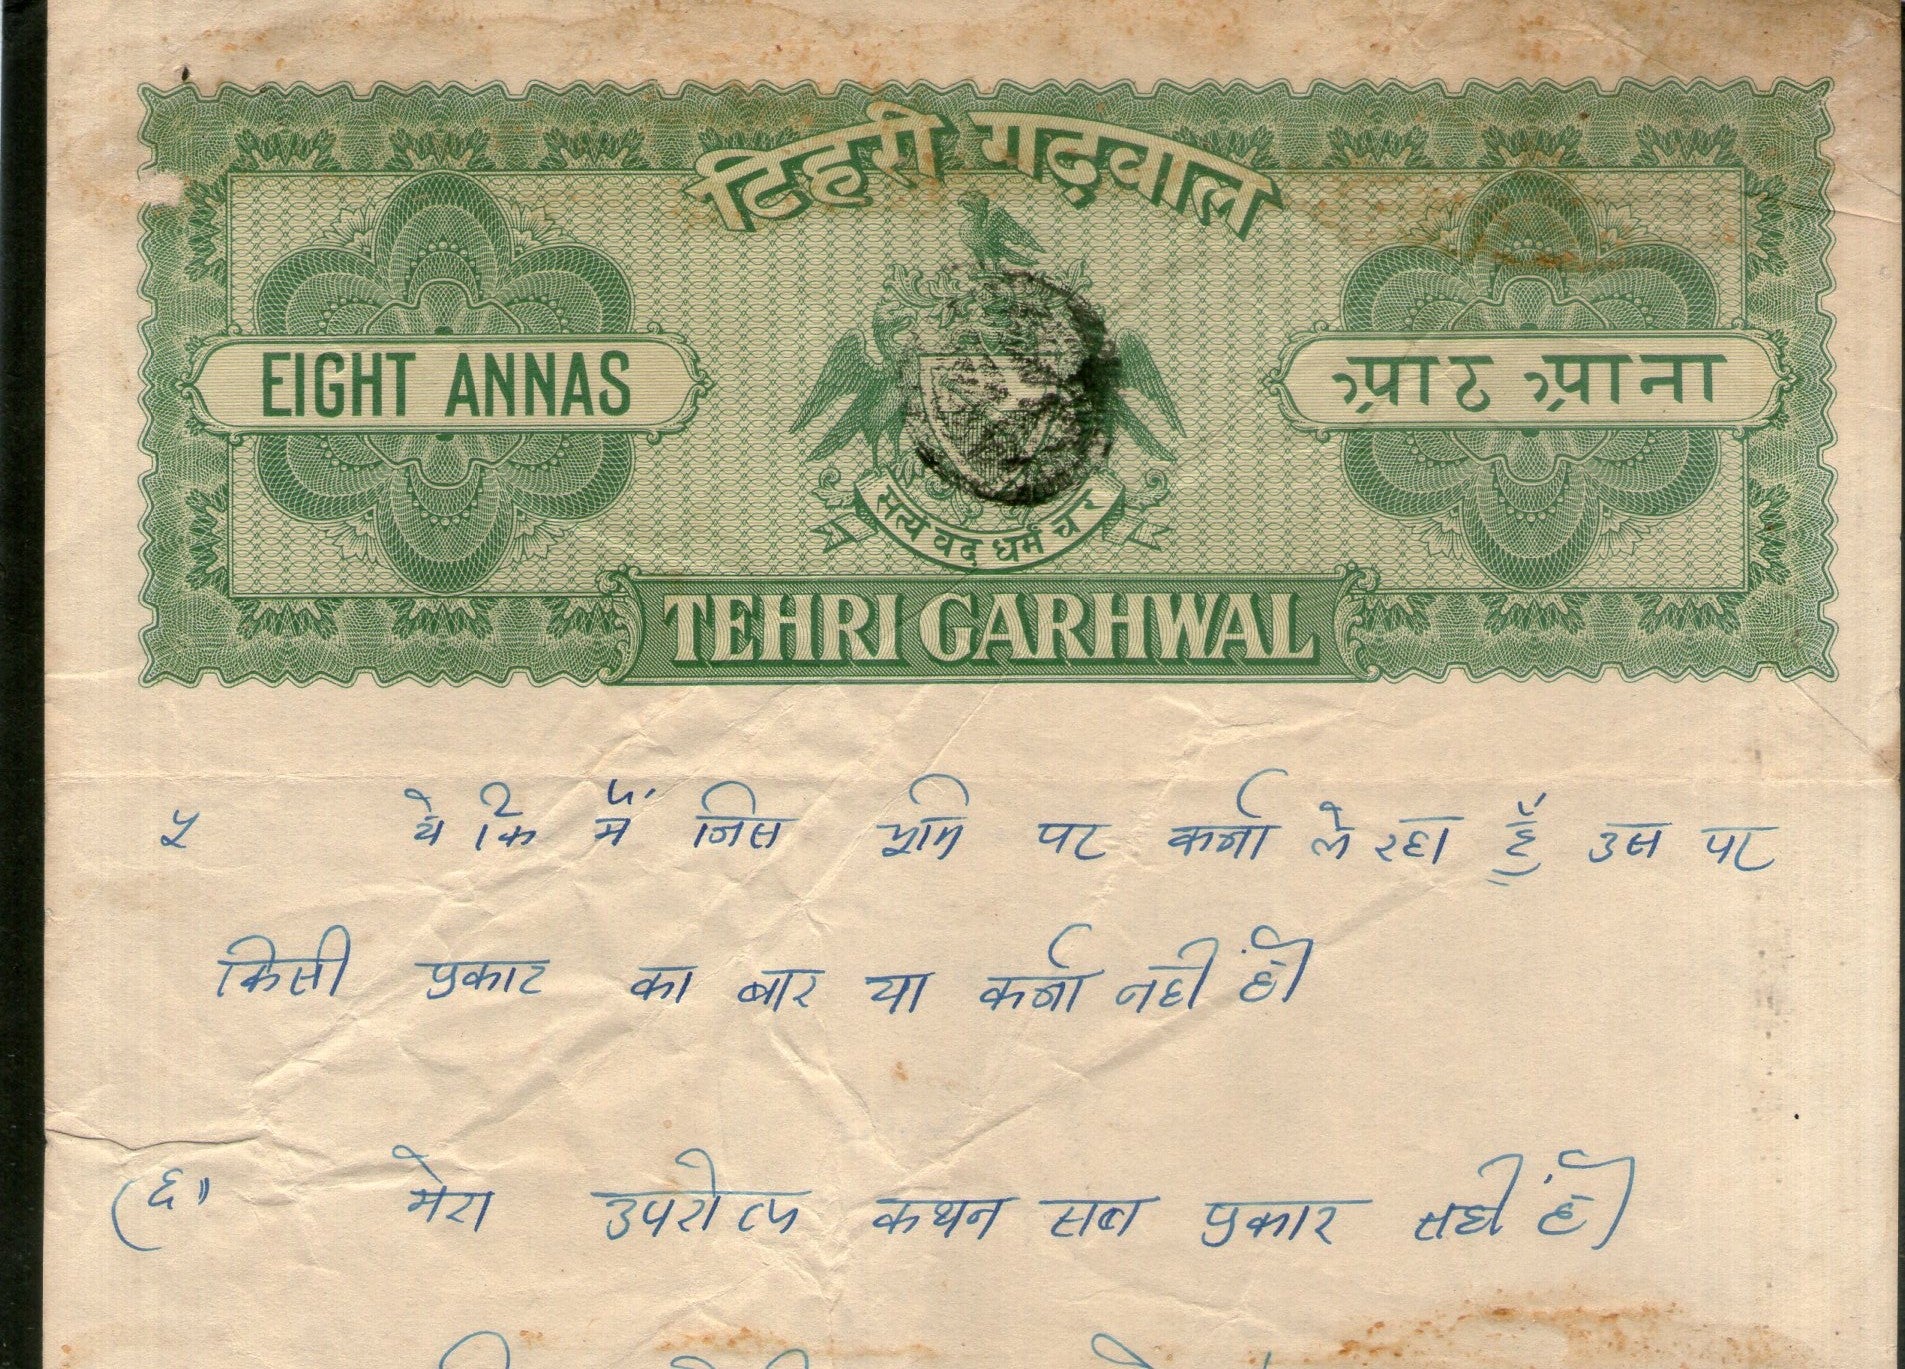 टिहरी गढ़वाल
EIGHT ANNAS
आठ आना
सत्यं वद धर्मं चर
TEHRI GARHWAL
५ ये कि मैं जिस भूमि पर कर्जा ले रहा हूँ उस पर
किसी प्रकार का बार या कर्जा नहीं है।
(६॥ मेरा उपरोक्त कथन सब प्रकार सही है।